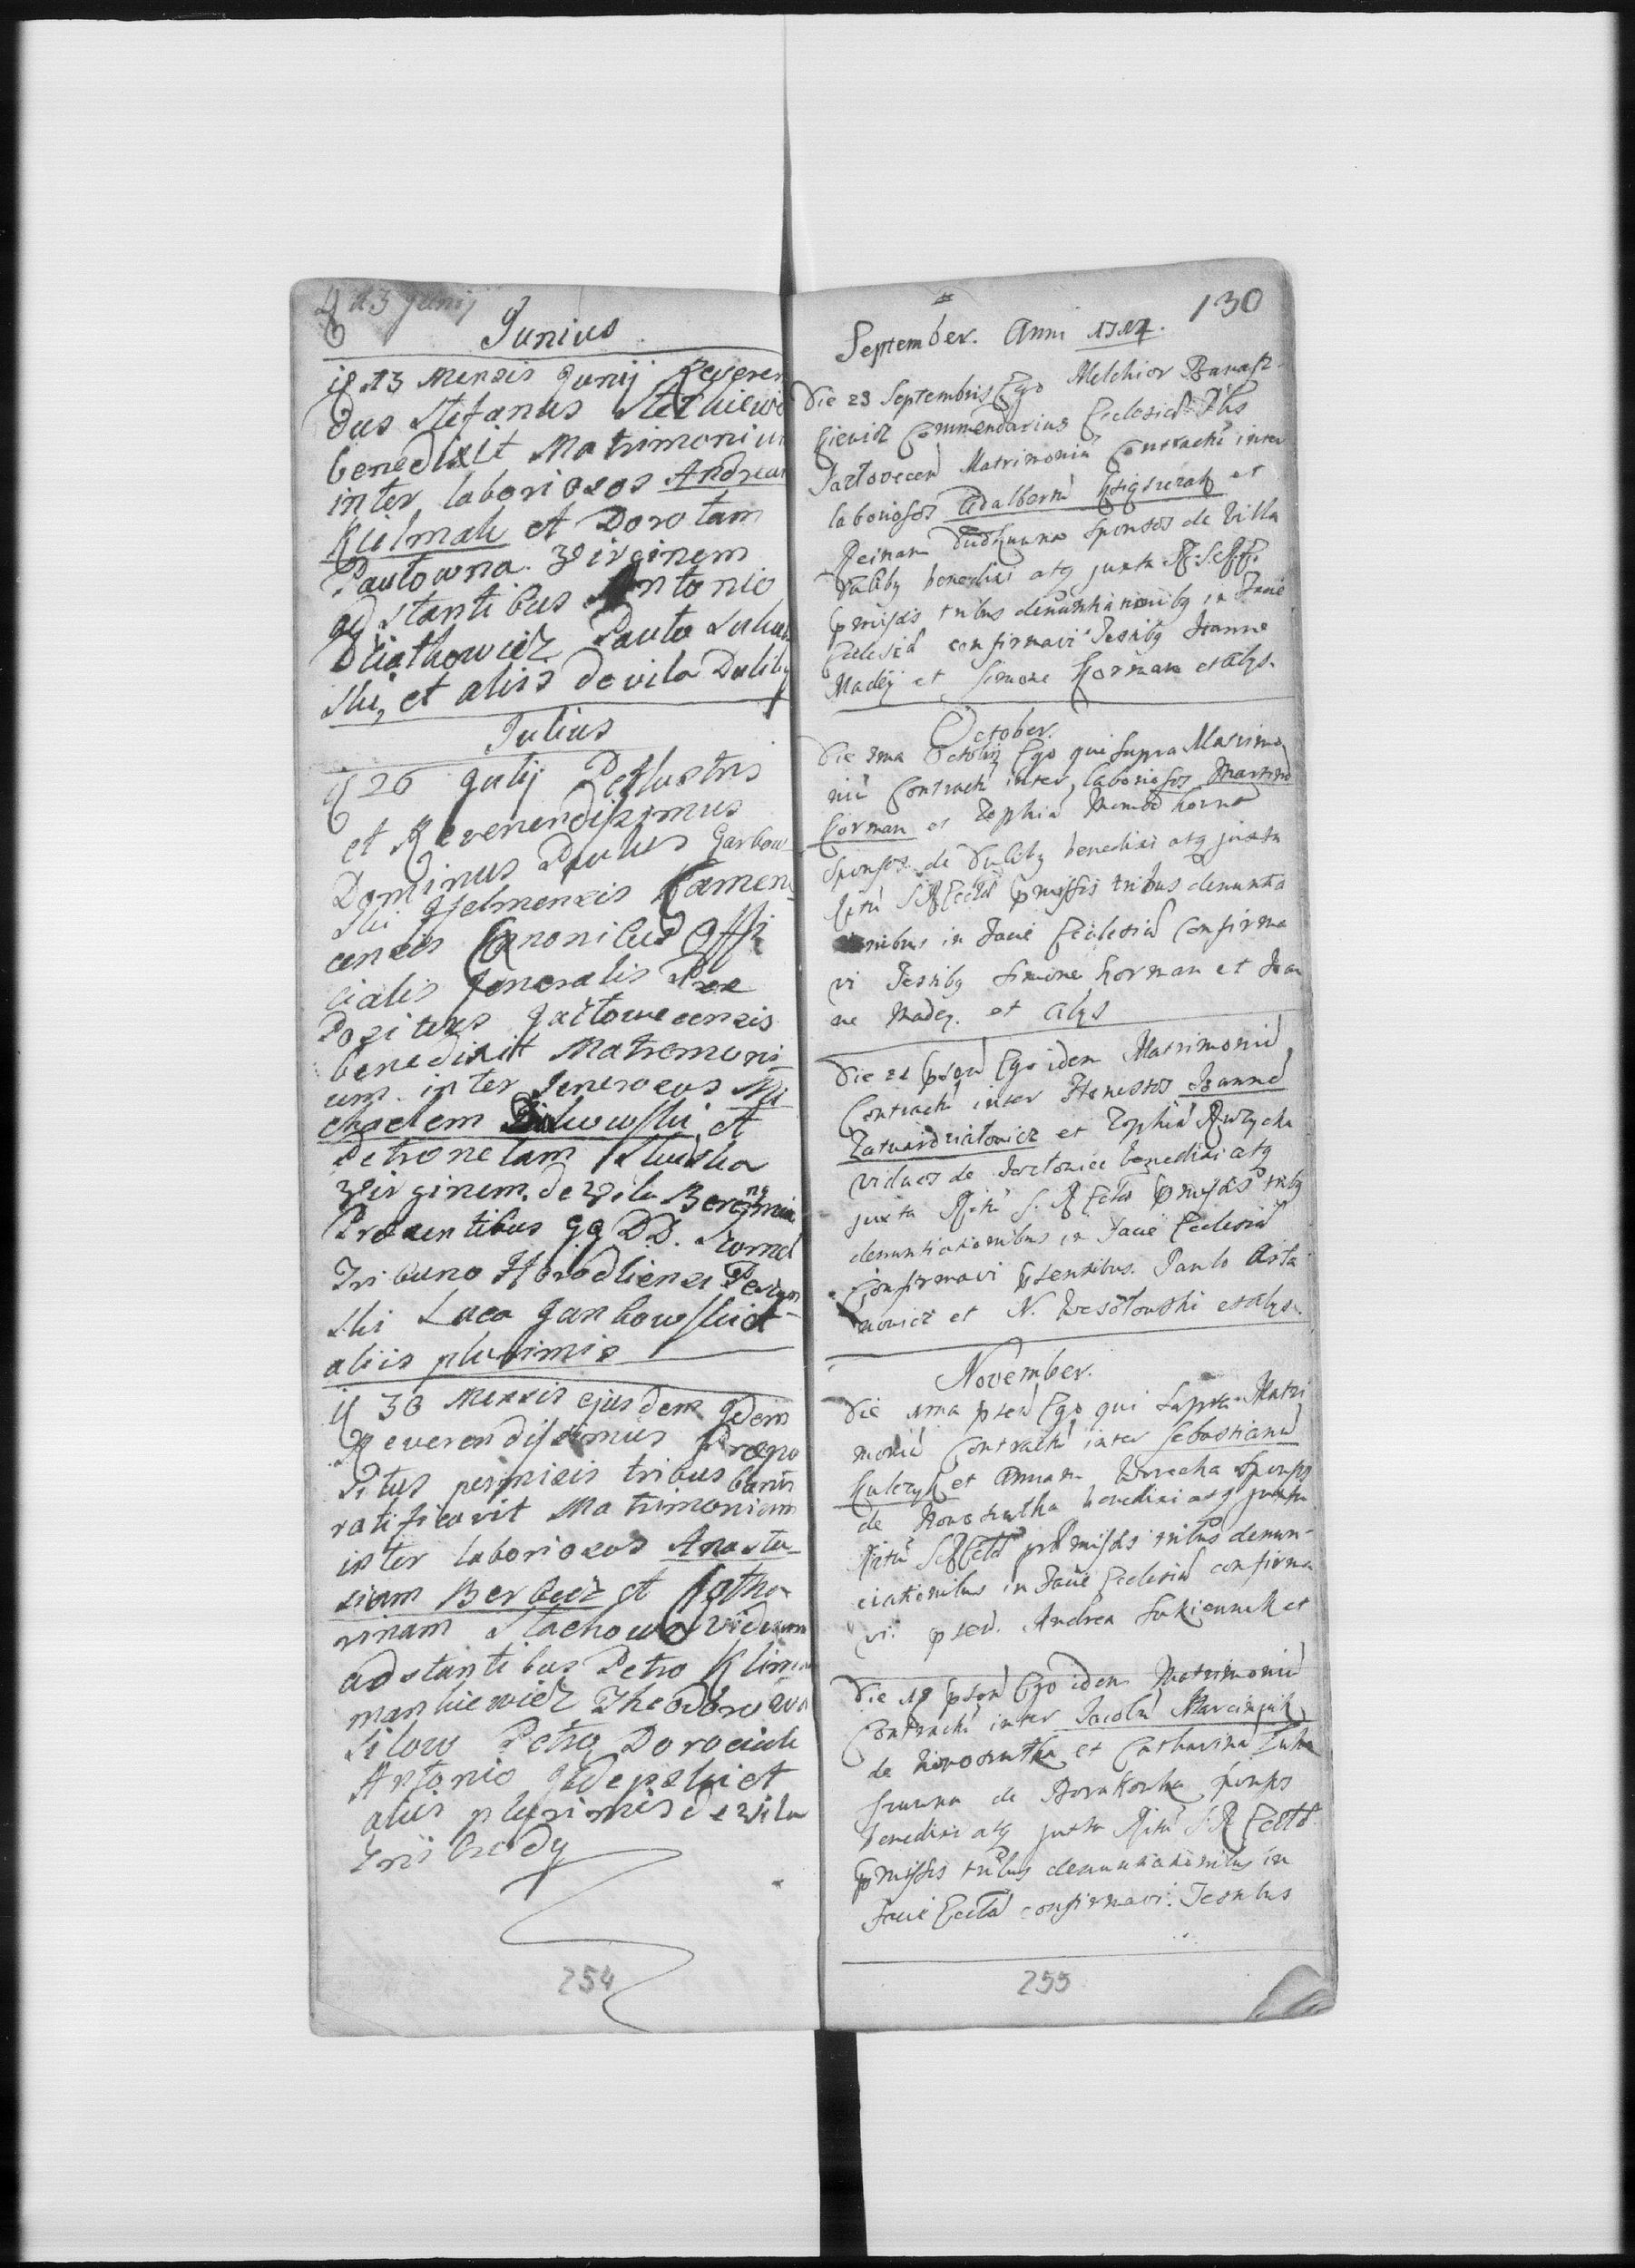 d 13 Junij
Junius
d 13 Mensis Junij Reveren
dus Stefanus
benedixit Matrimonium
inter laboriosos Andream
Kielmak et Dorotam
Pautowna. Virginem
adstantibus Antonio
Dziatkowicz Pauto
ski, et aliis de vila Duliby
Julius
d 26 Julij Perllustris
et Reverendissimus
Dominus Paulus Garbow
ski Helmensis Camene
censis Canonicus Offi
cialis Generalis Prae
Positus Jactowecensis
benedixit Matremoni
um inter Generosos Mi
chaelem et
Petronelam
Virginem. de Vila
Prezentibus GG DD.
Tribuno Horodliensi
ski Luca Jankowski et
aliis plurimis
d 30 Mensis ejusdem Idem
Reverendissimus Praepo
situs permisis tribus banis
ratificavit Matrimonium
inter laboriosos Anasta
siam Berbecz et Catha
rinam Stachowa Viduam
adstantibus Petro Klima
mankiewicz Theodoro
Silow Petro Dorociak
Antonio et
aliis plurimis de vila
Trzibrody
254
130
September. Anni 1714.
Die 23 Septembris Ego Melchior Banasz
kievicz Commendarius Ecclesiæ Phis
Jazlovecen Matrimoniũ Contractũ inter
laboriosos Adalbertũ et
Reinam Dudkuwna Sponsos de Villa
Duliby benedixi atq juxta R. S. R. E.
pmissis tribus denuntiationibq in facie
Ecclesiæ confirmavi Testibq Joanne
Madey et Simone Korman et alys.
October.
Die 3ma Octobris Ego qui supra Matrimo
niũ Contractũ inter laboriosos Martinũ
Korman et Zophiã
Sponsos de Duliby benedixi atq juxta
Ritũ S R Ecclæ pmissis tribus denuntia
tionibus in facie Ecclesiæ Confirma
vi Testibq Simone Korman et Joan
ne Madey. et alys
Die 21 psen Ego idem Matrimoniũ
Contractũ inter Honestos Joannẽ
Zatwardziatowicz et Zophiã
viduos de Jazlowiec benedixi atq
juxta Ritũ S. R Eclæ pmissis tribq
denuntiationibus in facie Ecclesiæ
Confirmavi psentibus. Paulo
nowicz et N. Wesołowski et alys.
November.
Die 1ma psen Ego qui Supra Matri
moniũ Contractũ inter Sebastianũ
Kulczyk et Annam Sponsos
de Nowosiutka benedixi atq juxta
Ritũ S R Ecclæ præmissis tribus denun-
ciationibus in facie Ecclesiæ confirma
vi. psen. Andrea et
Die 18 psen Ego idem Matrimoniũ
Contractũ inter Jacobũ Marciniuk
de Novosiutka et Catharinã
de sponsos
benedixi atq juxta Ritũ S R Ecclæ
pmissis tribus denuntiationibus in
facie Ecclæ confirmavi. Testibus
255